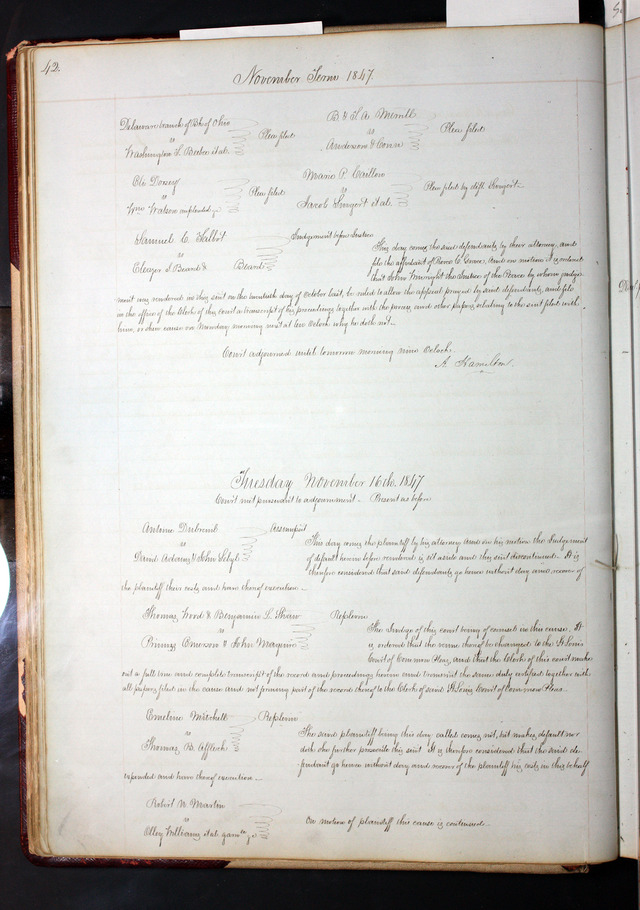 42.
November Term 1847.
Delaware branch of Bk of Ohio
vs
Washington L Beebe et al.
Plea filed
B & L A Merrill
vs
Anderson & Conn
Plea filed
Eli Dorsey
vs
Wm Watson impleaded &c
Plea filed
Maria P. Carllow
vs
Jacob Sweigert et al.
Plea filed by deft. Sweigert
Samuel C. Talbot
vs
Eleazer S Beard & Beard
Judgement before Justice
This day come the said defendants by their attorney, and
file the affidavit of and on motion it is ordered
that John the Justice of the Peace by whom judge-
ment was rendered in this suit on the day of October last, be ruled to allow the appeal prayed by said defendants, and file
in the office of the Clerk of this Court a transcript of his proceedings together with the process and other papers relating to the suit filed with
him, or show cause on Monday morning next at ten Oclock why he doth not.
Court adjourned until tomorrow morning nine Oclock.
A. Hamilton.
Tuesday November 16th. 1847
Court met pursuant to adjournment. Present as before
Antoine Dubreuil
vs
David Adams & John Sibyl
Assumpsit
This day comes the plaintiff by his attorney and on his motion the Judgement
of default herein before rendered is set aside and this suit discontinued. It is
therefore considered that said defendants go hence without day and recover of
the plaintiff their costs and have thereof execution.
Thomas Wood & Benjamin L. Shaw
vs
Primus Emerson & John Maguire
Replevin
The Judge of this court being of counsel in this cause. It
is ordered that the venue thereof be changed to the St Louis
Court of Common Pleas, and that the Clerk of this court make
out a full true and complete transcript of the record and proceedings herein and transmit the same duly certified together with
all papers filed in the cause and not forming part of the record thereof to the Clerk of said St Louis Court of Common Pleas.
Emeline Mitchell
vs
Thomas B. Affleck
Replevin
The said plaintiff being this day called comes not, but makes default nor
doth she further prosecute this suit. It is therefore considered that the said de-
fendant go hence without day and recover of the plaintiff his costs in this behalf
expended and have thereof execution.
Robert N Martin
vs
Olley Williams et al. garns &c
On motion of plaintiff this cause is continued.